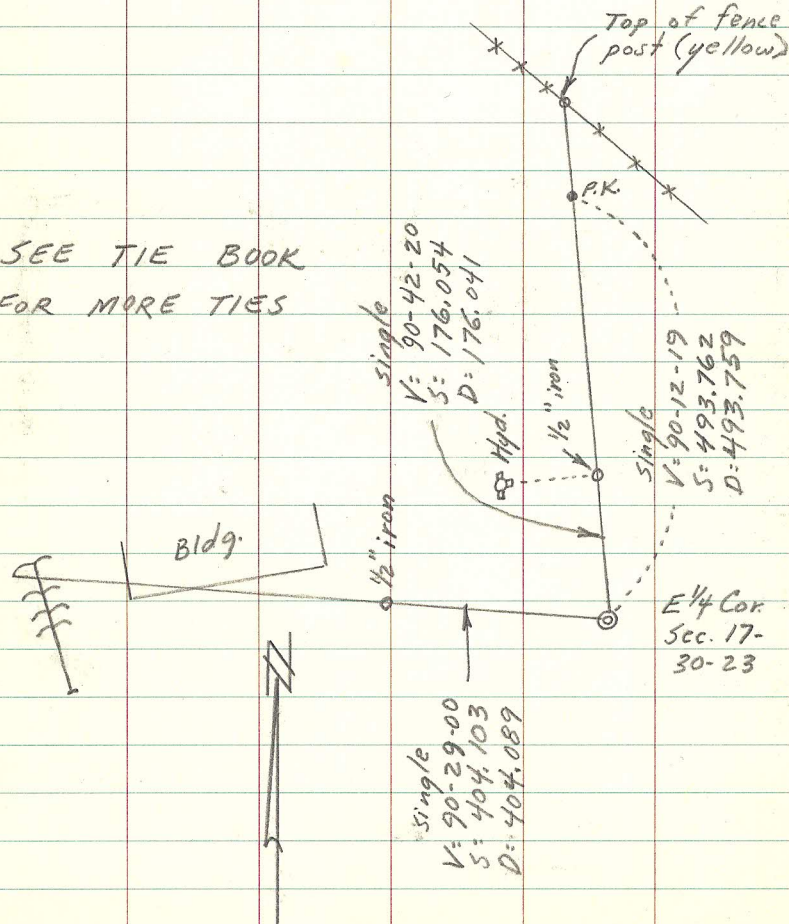 Top of fence
post (yellow)
P.K.
SEE TIE BOOK
FOR MORE TIES
single
V= 90-42-20
S= 176.054
D= 176.041
Hyd.
1/2" iron
Single
V= 90-12-19
S= 493.762
D= 493.759
Bldg.
1/2" iron
E 1/4 Cor.
Sec. 17-
30-23
N
single
V= 90-29-00
S= 404.103
D= 404.089